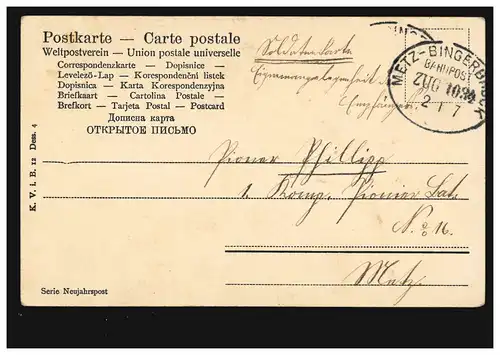 Postkarte — Carte postale
Weltpostverein — Union postale universelle
Correspondenzkarte — Dopisnice —
Levelező-Lap — Korespondenční lístek
Dopisnica — Karta Korespondenzyjna
Briefkaart — Cartolina Postale —
Brefkort — Tarjeta Postal — Postcard
Дописна карта
ОТКРЫТОЕ ПИСЬМО
Soldaten Karte
Eigene Angelegenheit d.
Empfängers
METZ-BINGERBRÜCK
BAHNPOST
ZUG 1034
2 1 7
Pionier Phillipp
1. Komp. Pionier Batl.
No 16.
Metz
K. V. i. B. 12 Dess. 4
Serie Neujahrspost